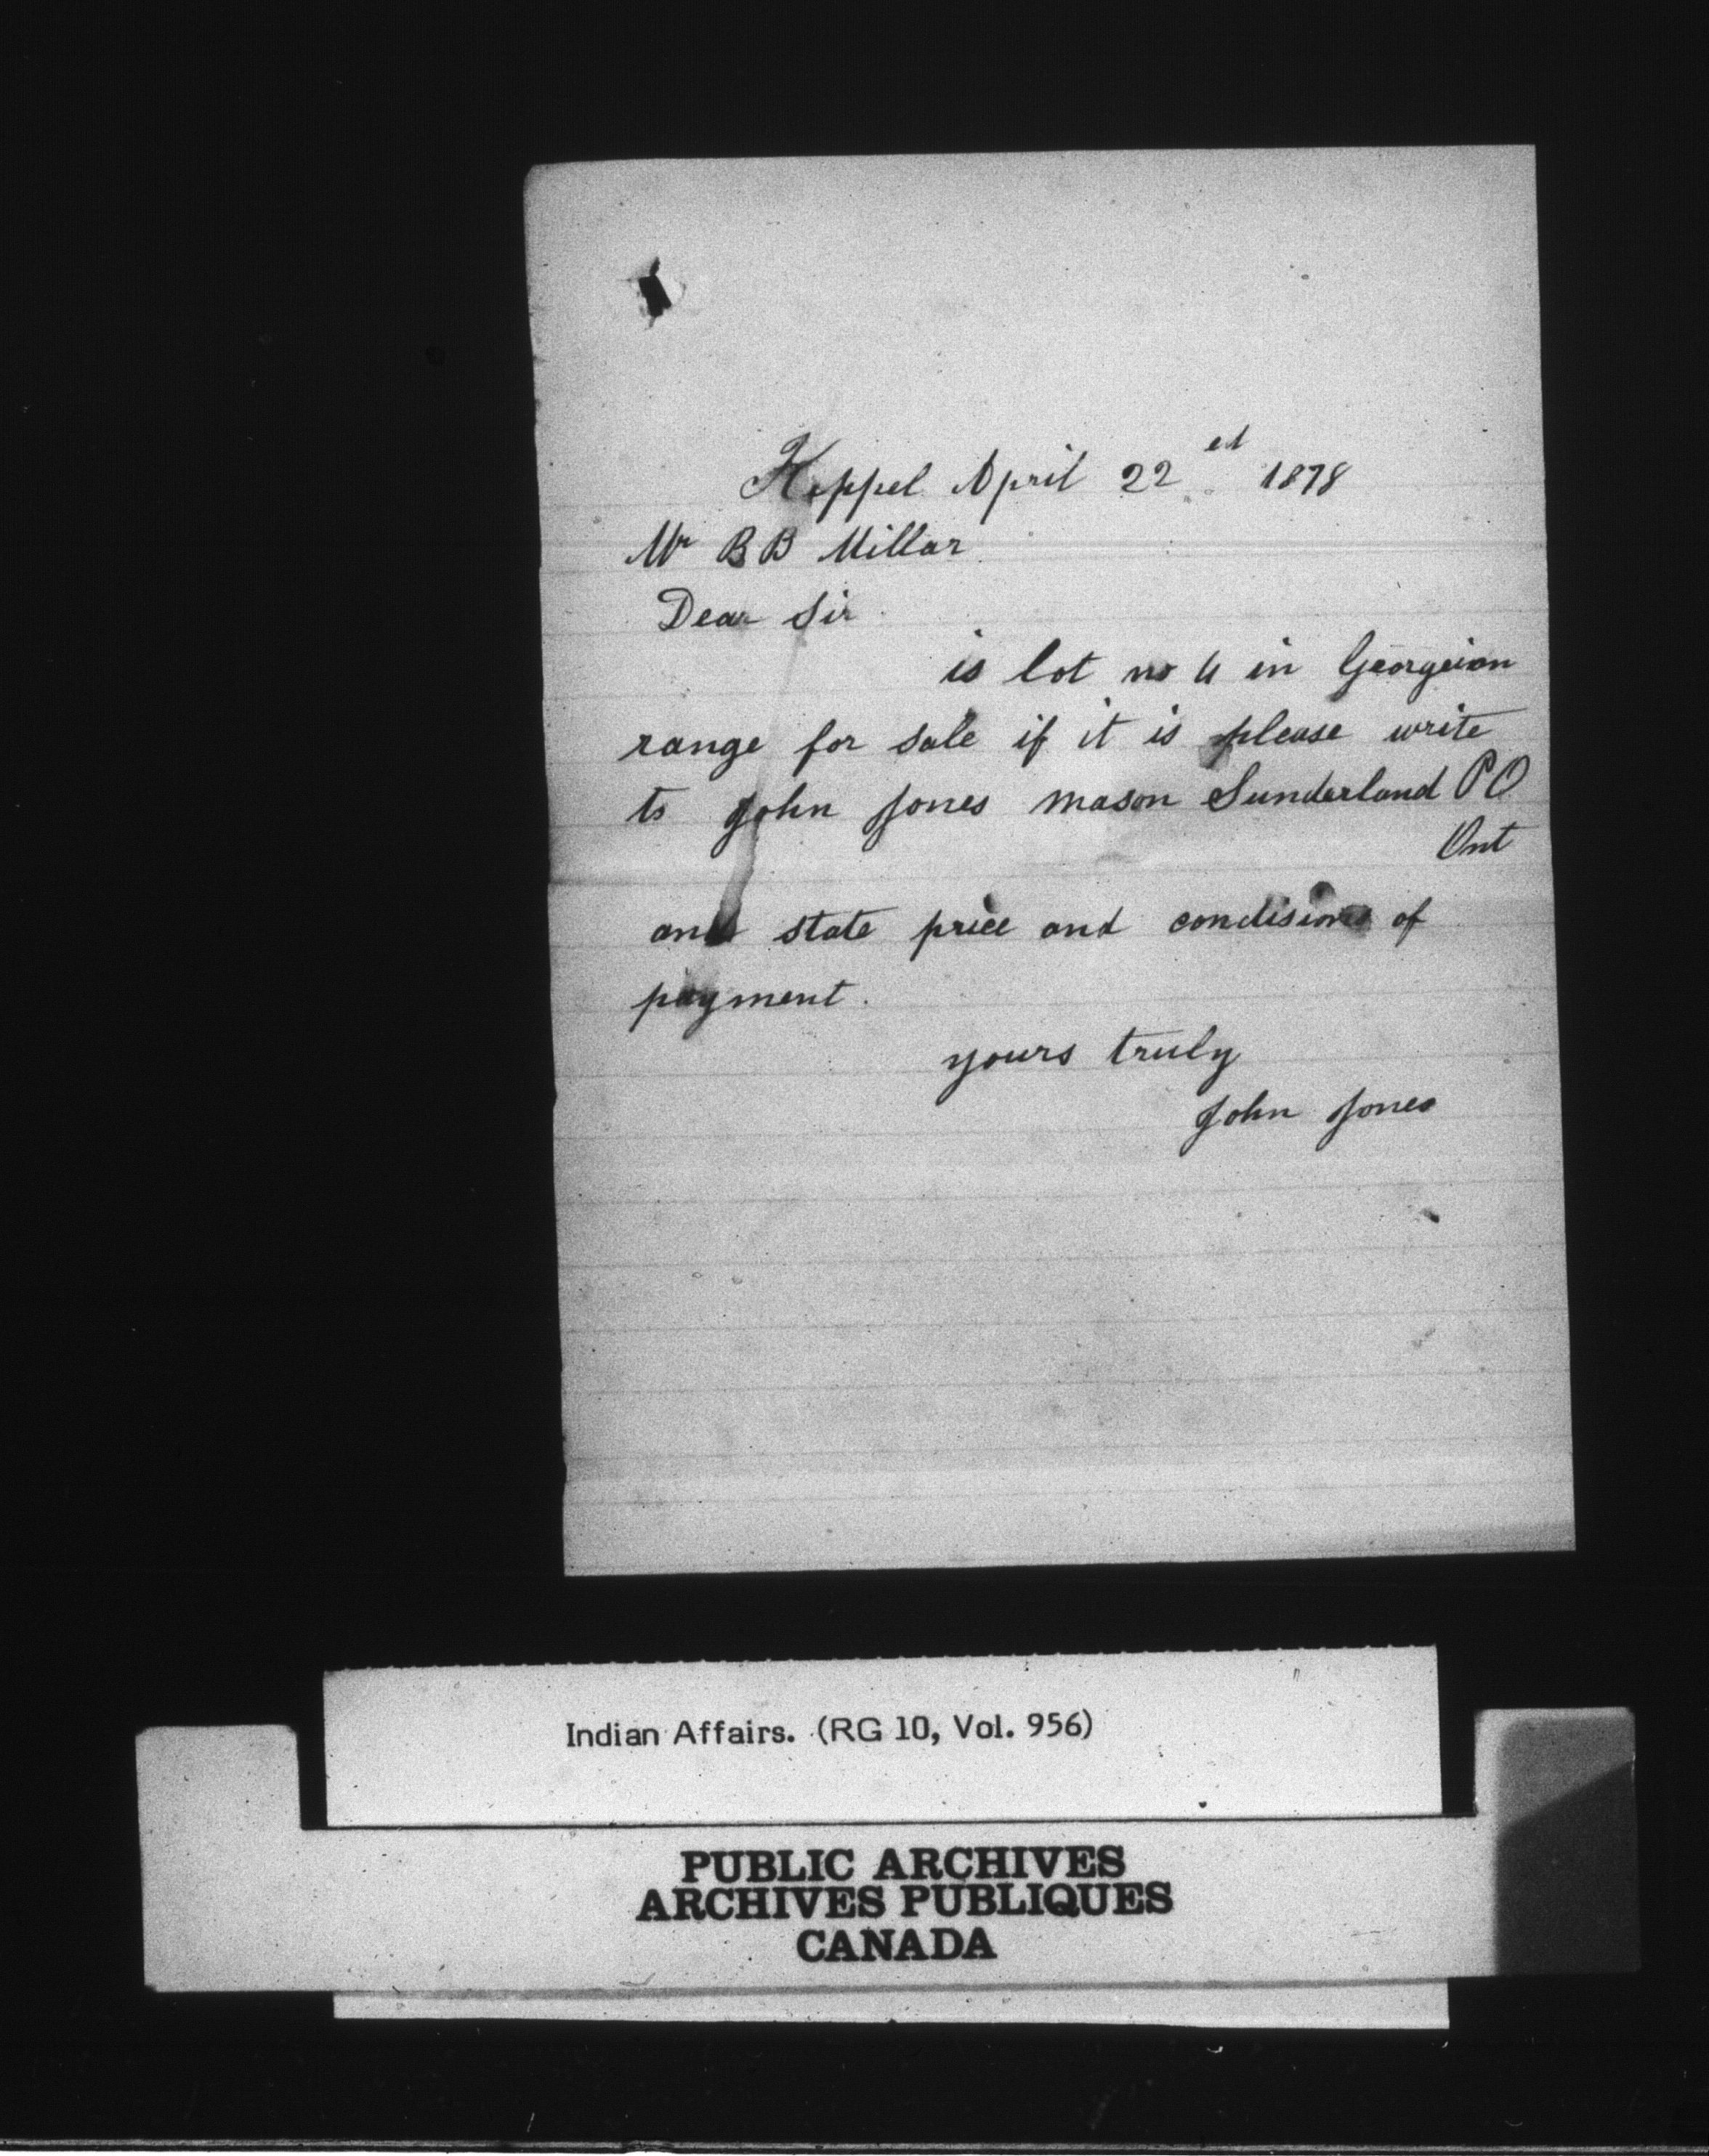 Keppel April 22ed 1878
Mr BB Millar
Dear Sir
is lot no 4 in Georgeion
range for sale if it is please write
to John Jones mason Sunderland PO
Ont
and state price and condisions of
payment.
yours truly
John Jones
Indian Affairs. (RG 10, Vol. 956)
PUBLIC ARCHIVES
ARCHIVES PUBLIQUES
CANADA